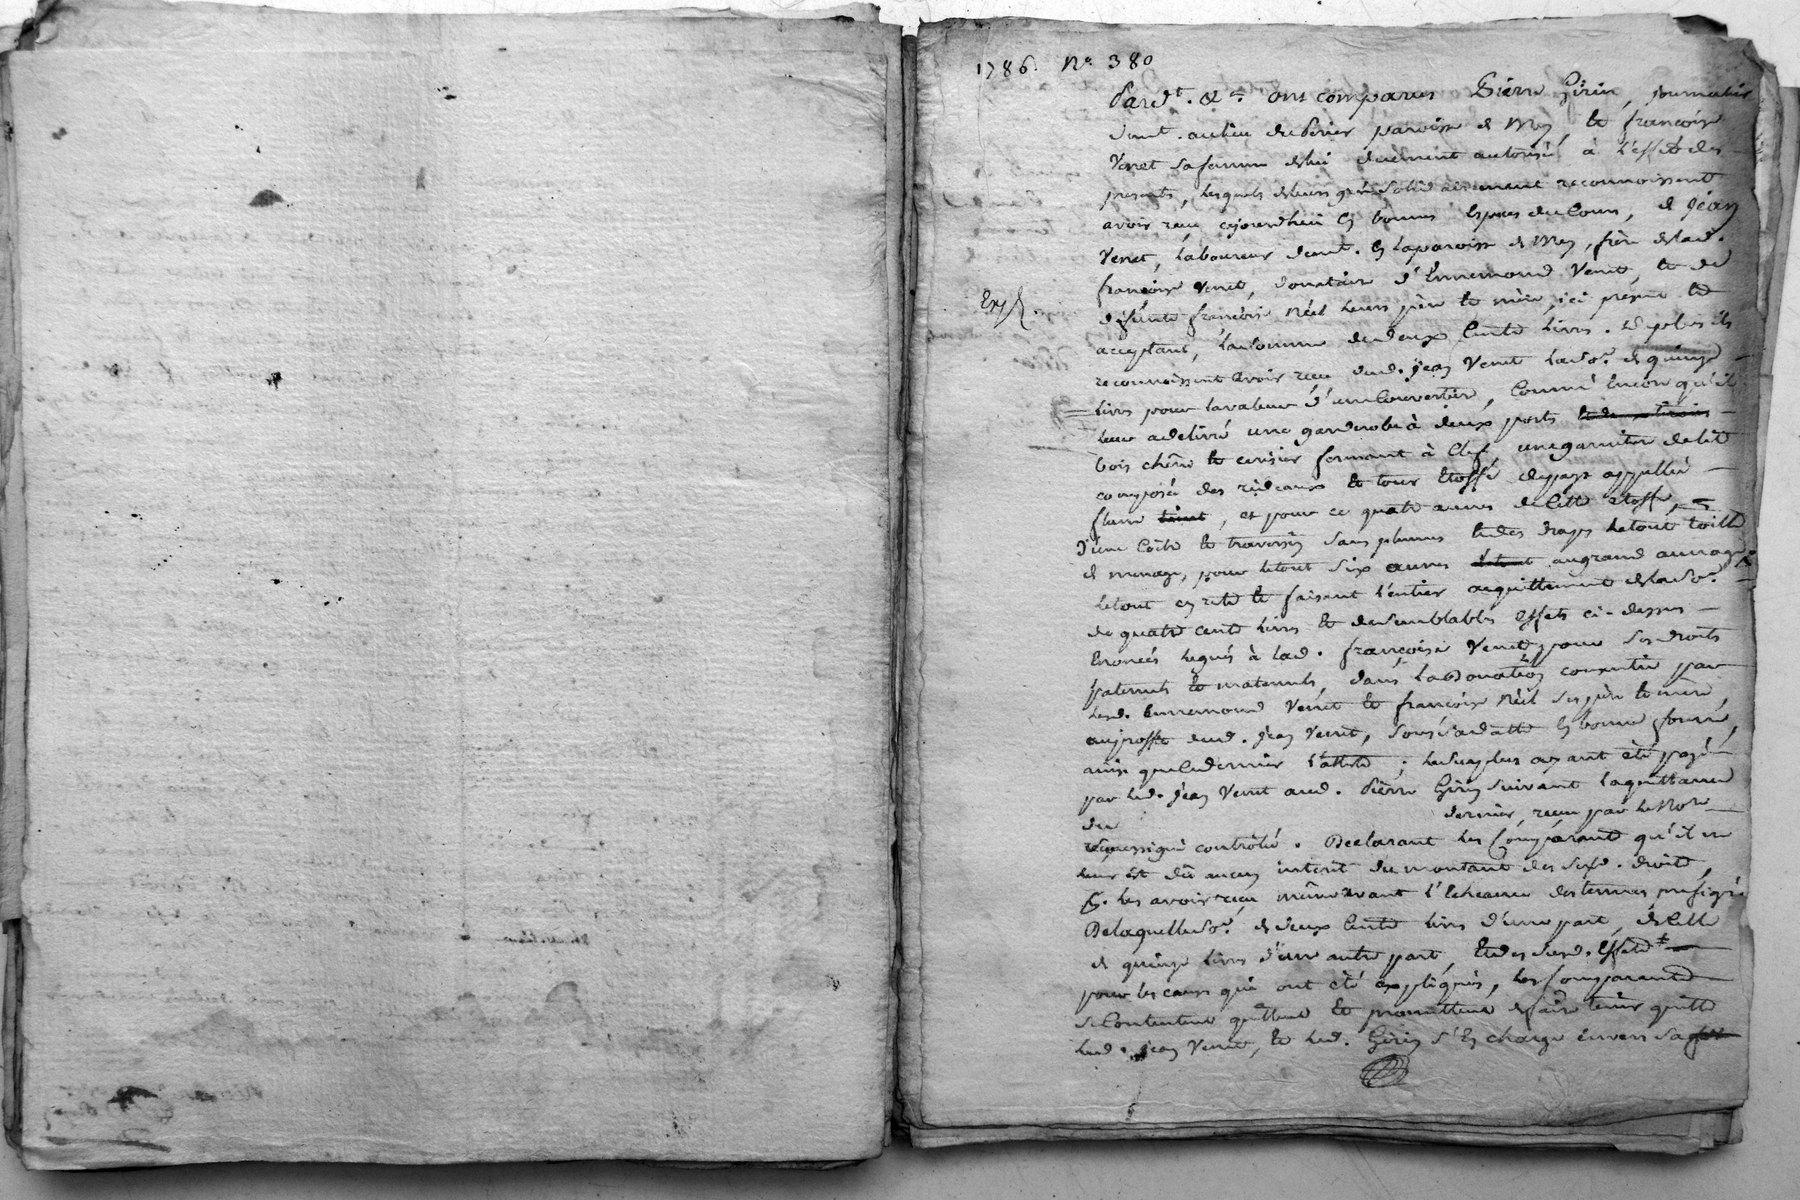 1786. N° 380
Pardt. &a. ont comparus Pierre Girin, journalier
demt. au lieu du Perier paroisse de Mey, et françoise
Venet sa femme de lui duement autorisée à l'effet des
presentes, lesquels de leurs gré solidairement reconnoissent
avoir reçu cejourdhui en bonnes espèces du cours, de Jean
Venet, laboureur demt. en la paroisse de Mey, frère de lad.
françoise Venet, donataire d'Ennemond Venet, et de
défunte françoise Néel leurs père et mère, ici présent et
Exp
acceptant, la somme de deux cents livres. De plus ils
reconnoissent avoir reçu dud. Jean Venet la So.e de quinze
livres pour la valeur d'une couverture, comme encore qu'il
leur a délivré une garderobe à deux portes et deux tiroirs
bois chêne et cerisier fermant à clef, une garniture de lit
composée des rideaux et tour étoffe du pays appellée
, et pour ce quatre aunes de cette étoffe,
d'une coitre et traversin sans plumes et des draps le tout toille
de menage, pour le tout six aunes le tout au grand aunage
le tout en reste et faisant l'entier acquittement de la So.e
de quatre cents livres et de semblables effets ci-dessus
énoncés legués à lad. françoise Venet pour ses droits
paternels et maternels, dans la Donation consentie par
lesd. Ennemond Venet et françoise Néel ses père et mère,
au proffit dud. Jean Venet, sous sa datte en bonne forme,
ainsi que ce dernier l'atteste ; le surplus ayant été payé
par led. Jean Venet aud. Pierre Girin suivant la quittance
du dernier, reçue par le Nore
soussigné contrôlée. Declarant les Comparants qu'il ne
leur est dû aucun interet du montant des susd. droits,
les avoir reçu même avant l'écheance des termes prefigés
De laquelle So.e de deux cents livres d'une part, de celle
de quinze livres d'une autre part, et des susd. effets
pour les causes qui ont été expliquées, les Comparants
se contentent quittent et promettent de faire tenir quitte
led. Jean Venet, et led. Girin s'en charge envers sa